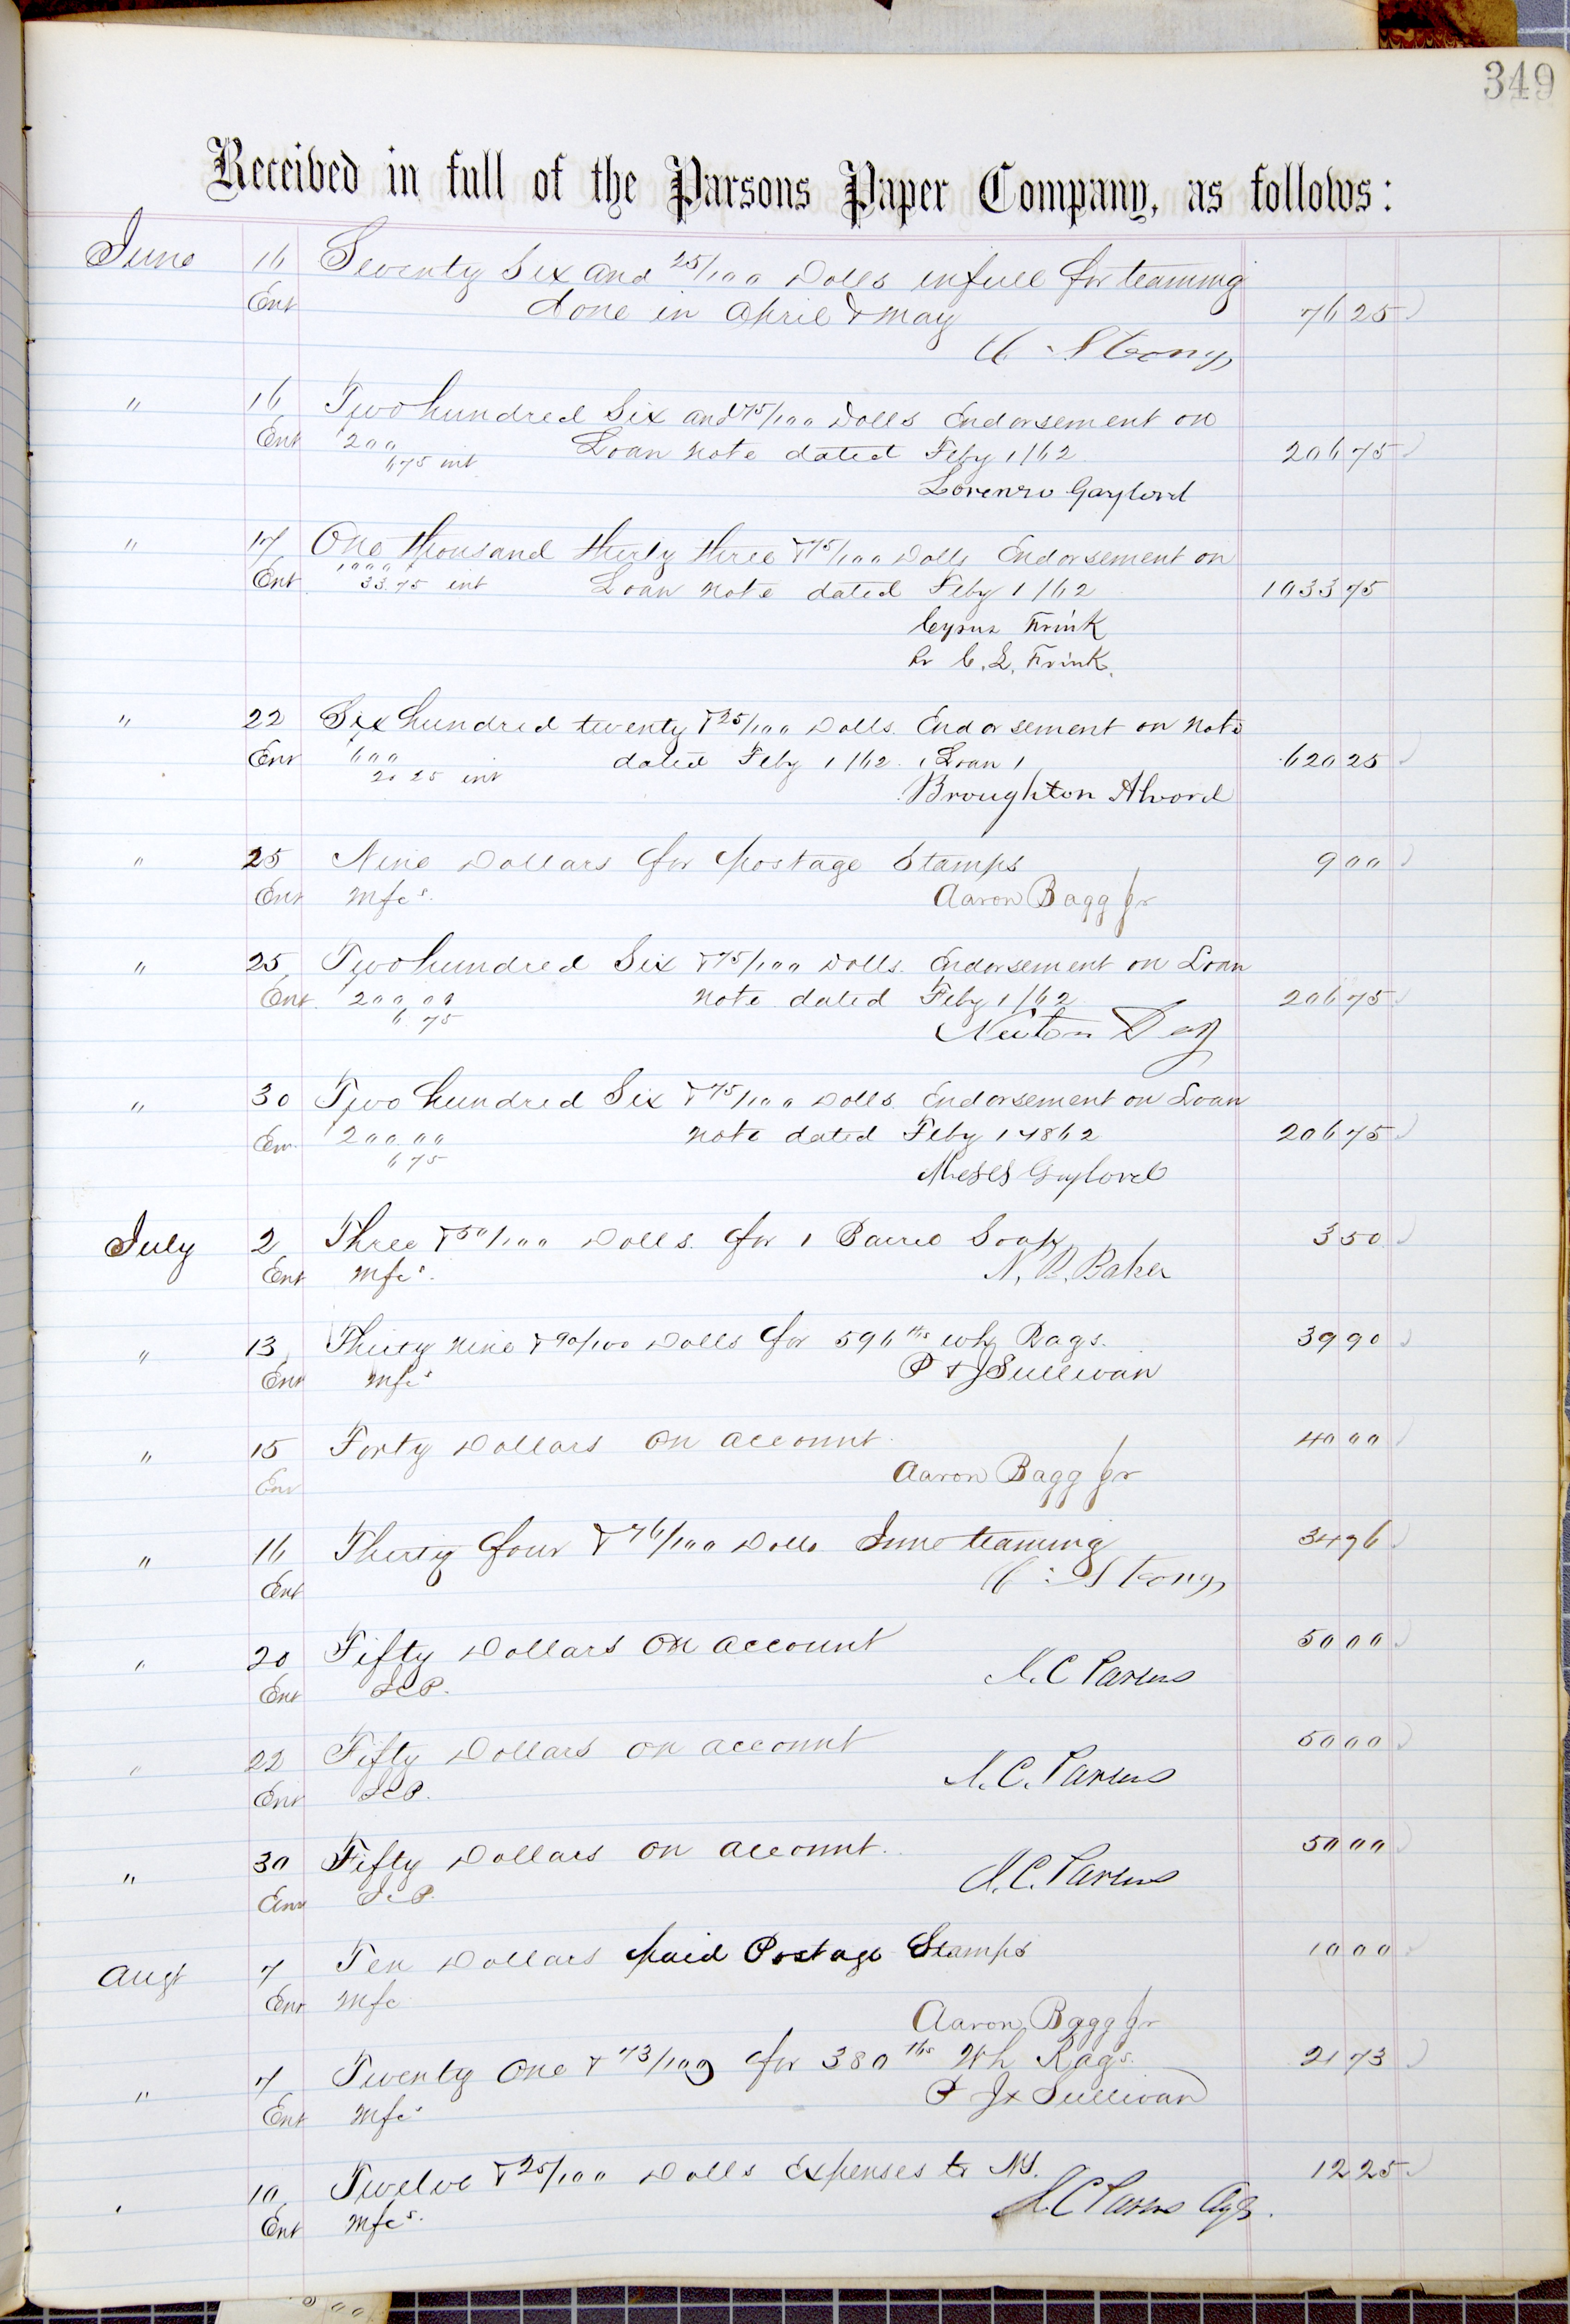 349
Received in full of the Parsons Paper Company, as follows:
June 16 Seventy Six and 25/100 Dolls in full for teaming
Ent done in April & May 76 25
C. Strong
" 16 Two hundred Six and 75/100 Dolls Endorsement on
Ent 200 Loan note dated Feby 1/62 206 75
6 75 int
Lorenzo Gaylord
" 17 One thousand thirty three & 75/100 Dolls Endorsement on
1000
Ent 33.75 int Loan note dated Feby 1/62 1033 75
Cyrus Frink
Pr C. L. Frink.
" 22 Six hundred twenty & 25/100 Dolls. Endorsement on note
Ent 600 dated Feby 1/62. (Loan) 620 25
20 25 int
Broughton Alvord
" 25 Nine Dollars for postage Stamps 9 00
Ent Mfcs. Aaron Bagg Jr
" 25 Two hundred Six & 75/100 Dolls. Endorsement on Loan
Ent. 200.00 note dated Feby 1/62 206 75
6.75
Newton Day
" 30 Two hundred Six & 75/100 Dolls. Endorsement on Loan
Ent. 200.00 note dated Feby 1 1862 206 75
6 75
Moses Gaylord
July 2 Three & 50/100 Dolls. for 1 Barrel Soap 3 50
Ent Mfcs. N. B. Baker
" 13 Thirty nine & 90/100 Dolls for 596 lbs wh Rags. 39 90
Ent Mfcs P & J Sullivan
" 15 Forty Dollars on account. 40 00
Ent Aaron Bagg Jr
" 16 Thirty four & 76/100 Dolls June teaming 34 76
Ent C. Strong
" 20 Fifty Dollars on account 50 00
Ent JCP. J. C Parsons
" 22 Fifty Dollars on account 50 00
Ent JCP. J. C. Parsons
" 30 Fifty Dollars on account. 50 00
Ent JCP. J. C. Parsons
Augt 7 Ten Dollars paid Postage Stamps 10 00
Ent Mfc
Aaron Bagg Jr
" 7 Twenty One & 73/100 for 380 lbs Wh Rags. 21 73
Ent Mfcs P & J Sullivan
" 10 Twelve & 25/100 Dolls Expenses to NY. 12 25
Ent Mfcs. J. C Parsons Agt.